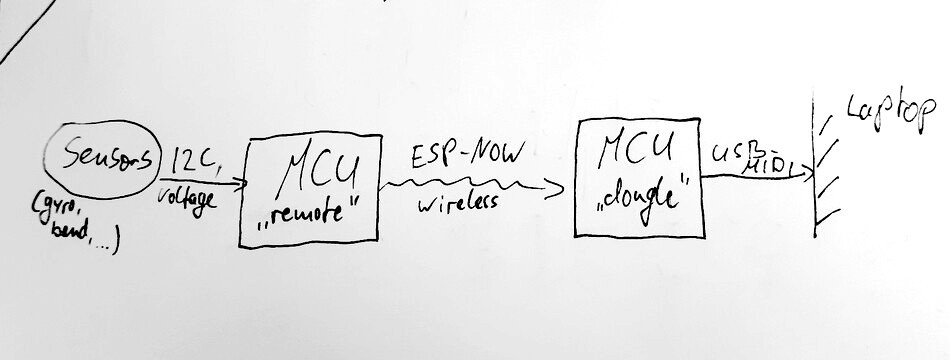 Sensors
(gyro,
bend,...)
I2C,
voltage
MCU
„remote"
ESP-NOW
wireless
MCU
„dongle"
USB-
MIDI
Laptop